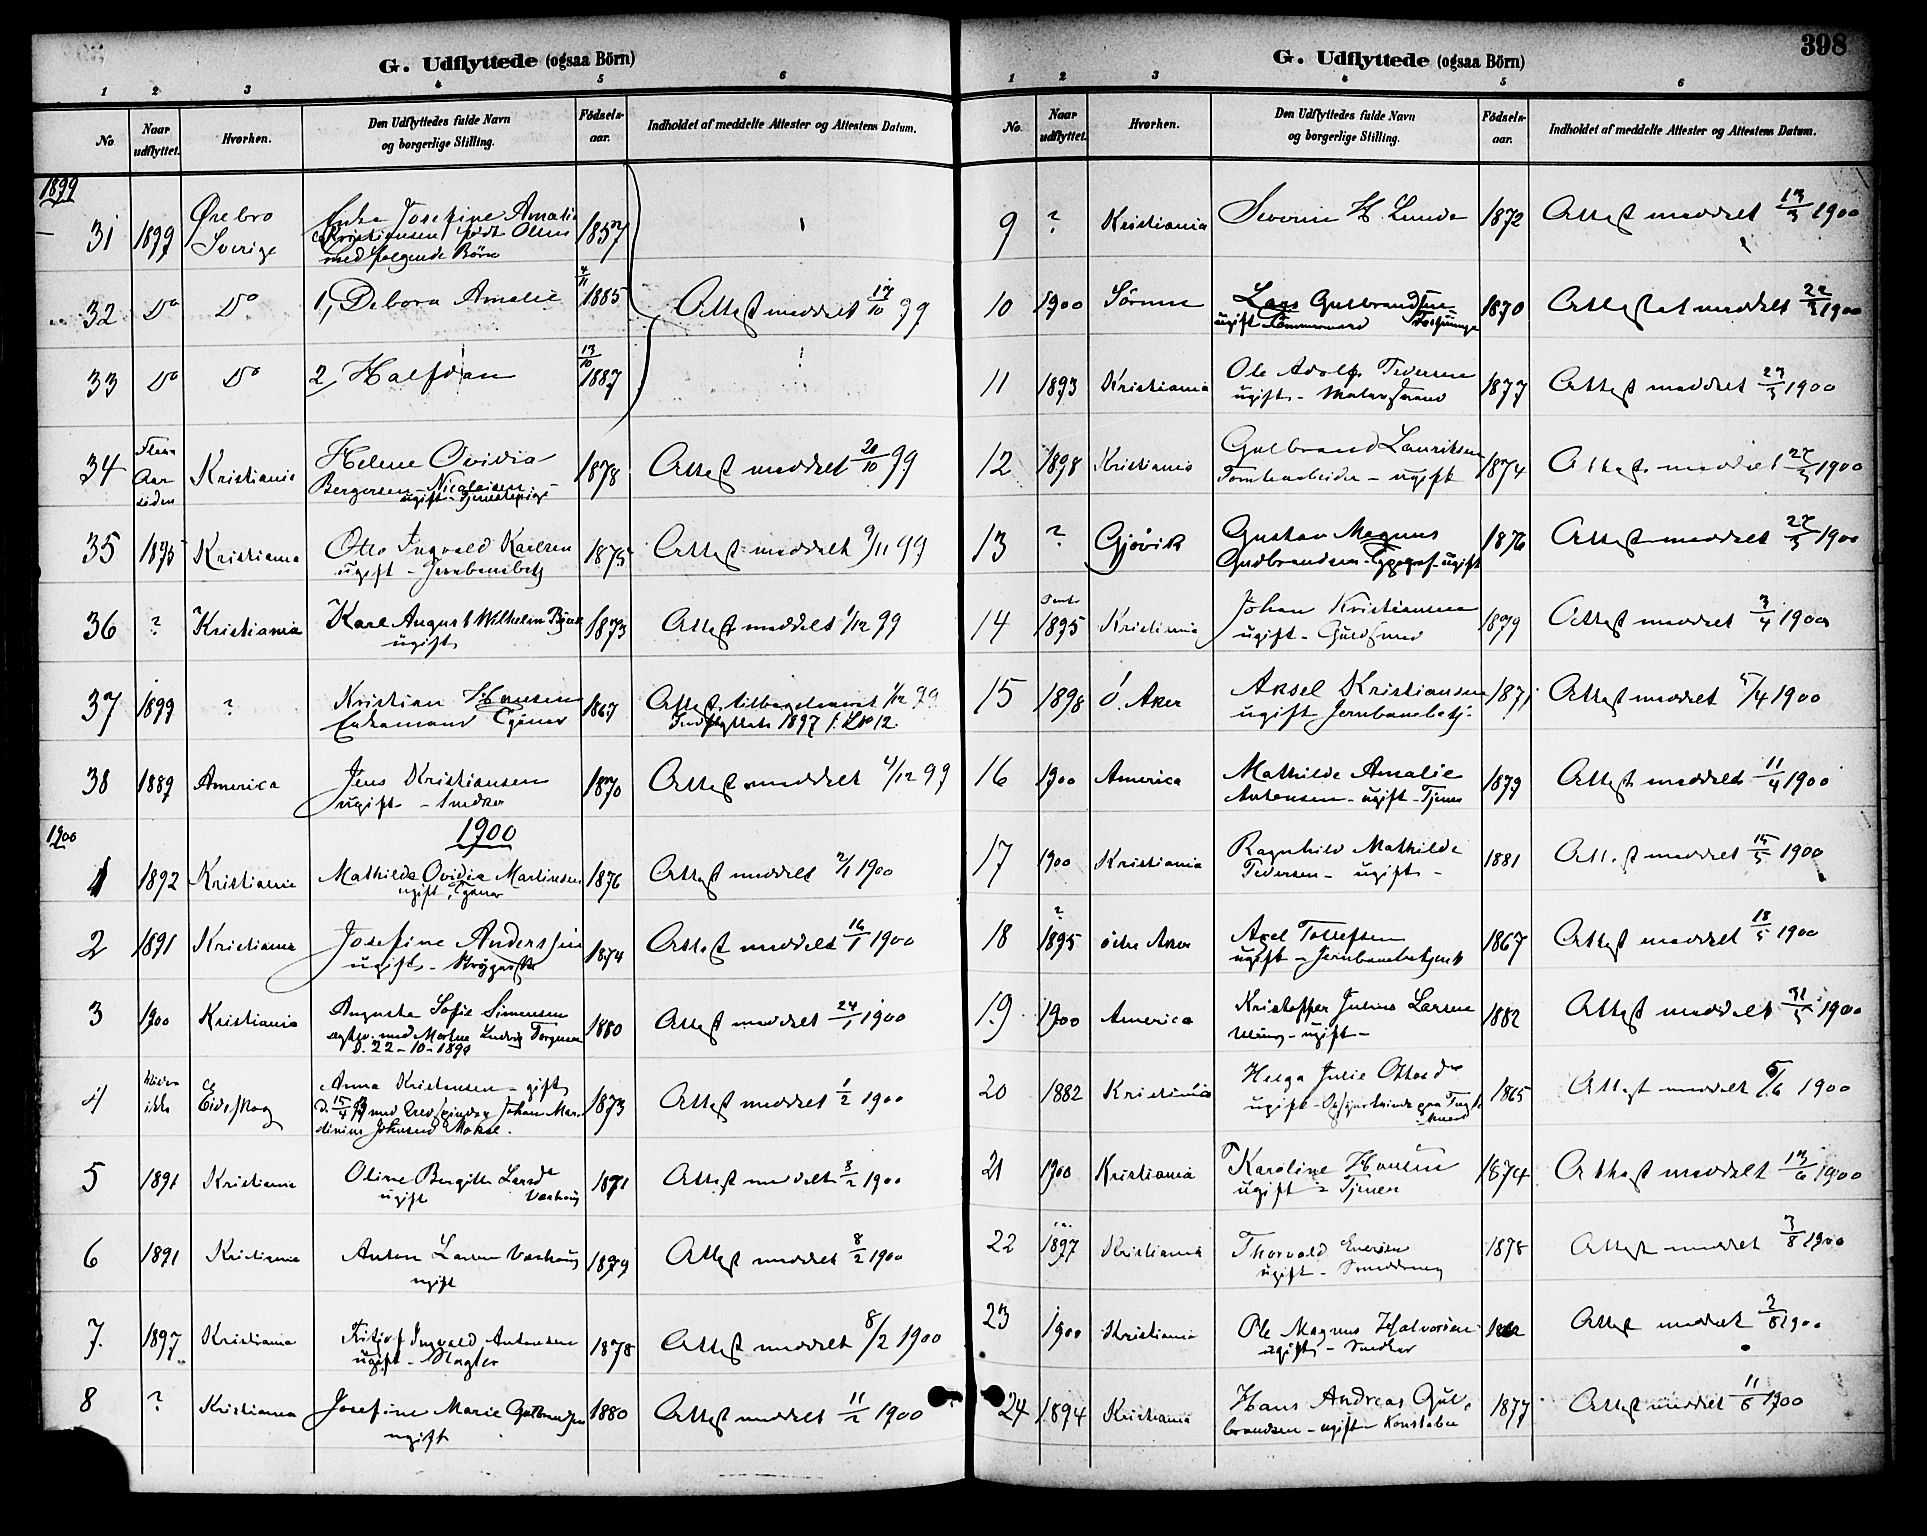 G. Udflyttede (ogsaa Börn)
1 2 3 4 5 6
No Naar udflyttet. Hvorhen. Den Udflyttedes fulde Navn og borgerlige Stilling. Födsels-aar. Indholdet af meddelte Attester og Attestens Datum.
1899
31 1899 Ørebro Sverige Enke Josefine Amalie
Kristiansen født Olsen 1857
med følgende Børn
32 Do Do 1, Debora Amalie 4/11 1885 Attest meddelt 17/10 99
33 Do Do 2, Halfdan 13/10 1887
34 Flere Aar siden Kristiania Helene Ovidia
Bergersen Nicolaisen 1878 Attest meddelt 20/10 99
ugift - Tjenestepige
35 1895 Kristiania Otto Ingvald Karlsen
ugift - Jernbanebetj 1875 Attest meddelt 9/11 99
36 ? Kristiania Karl August Wilhelm
ugift 1873 Attest meddelt 1/12 99
37 1899 ? Kristian Hansen
Enkemand Tjener 1867 Attest tilbageleveret 1/12 99
Indflyttet 1897 f. No 12
38 1889 America Jens Kristiansen
ugift - Snedker 1870 Attest meddelt 4/12 99
1900
1900
1 1892 Kristiania Mathilde Ovidia Martinsen
ugift, Tjener 1876 Attest meddelt 2/1 1900
2 1891 Kristiania Josefine Anderssen
ugift - Strygerske 1874 Attest meddelt 16/1 1900
3 1900 Kristiania Augusta Sofie Simensen
med Ludvig 1880 Attest meddelt 24/1 1900
d. 22-10-189
4 ikke Eidskog Anna Kristensen - gift
d. 15/4 99 med Johan Mar- 1873 Attest meddelt 1/2 1900
dinius Johnsen
5 1891 Kristiania Oline Bergitte Larsd
ugift 1871 Attest meddelt 8/2 1900
6 1891 Kristiania Anton Larsen
ugift 1879 Attest meddelt 8/2 1900
7. 1897 Kristiania Fritjof Ingvald Antonsen
ugift - Slagter 1878 Attest meddelt 8/2 1900
8 ? Kristiania Josefine Marie Gulbrandsen
ugift 1880 Attest meddelt 11/2 1900
398
G. Udflyttede (ogsaa Börn)
1 2 3 4 5 6
No. Naar udflyttet. Hvorhen. Den Udflyttedes fulde Navn og borgerlige Stilling. Födsels-aar. Indholdet af meddelte Attester og Attestens Datum.
9 ? Kristiania Severin H. Lunde 1872 Attest meddelt 13/3 1900
10 1900 Sörum Lars Gulbrandsen
ugift Tömmermand 1870 Attestat meddelt 22/3 1900
11 1893 Kristiania Ole Adolf Pedersen
ugift - Malersvend 1877 Attest meddelt 27/3 1900
12 1898 Kristiania Gulbrand Lauritsen
Tomtearbeider - ugift 1874 Attest meddelt 27/3 1900
13 ? Gjövik Gustav Magnus
Gudbrandsen - Typograf - ugift 1876 Attest meddelt 27/3 1900
14 1895 Kristiania Johan Kristiansen
ugift - Guldsmed 1879 Attest meddelt 3/4 1900
15 1898 Ö. Aker Aksel Kristiansen
ugift Jernbanebetj. 1871 Attest meddelt 5/4 1900
16 1900 America Mathilde Amalie
Antonsen - ugift - Tjener 1879 Attest meddelt 11/4 1900
17 1900 Kristiania Ragnhild Mathilde
Pedersen - ugift - 1881 Attest meddelt 15/5 1900
18 ? 1895 östre Aker Axel Tollefsen
ugift - Jernbanebetjent 1867 Attest meddelt 18/5 1900
19. 1900 America Kristoffer Julius Larsen
- ugift - 1882 Attest meddelt 31/5 1900
20 1882 Kristiania Helga Julie
ugift - paa 1865 Attest meddelt 5/6 1900
21 1900 Kristiania Karoline Hansen
ugift = Tjener 1874 Attest meddelt 13/6 1900
22 1897 Kristiania Thorvald
ugift - 1878 Attest meddelt 3/8 1900
23 1900 Kristiania Ole Magnus Halvorsen
ugift - Snedker Attest meddelt 2/8 1900
24 1894 Kristiania Hans Andreas Gul-
brandsen - ugift - Konstabel 1877 Attest meddelt 11/6 1900